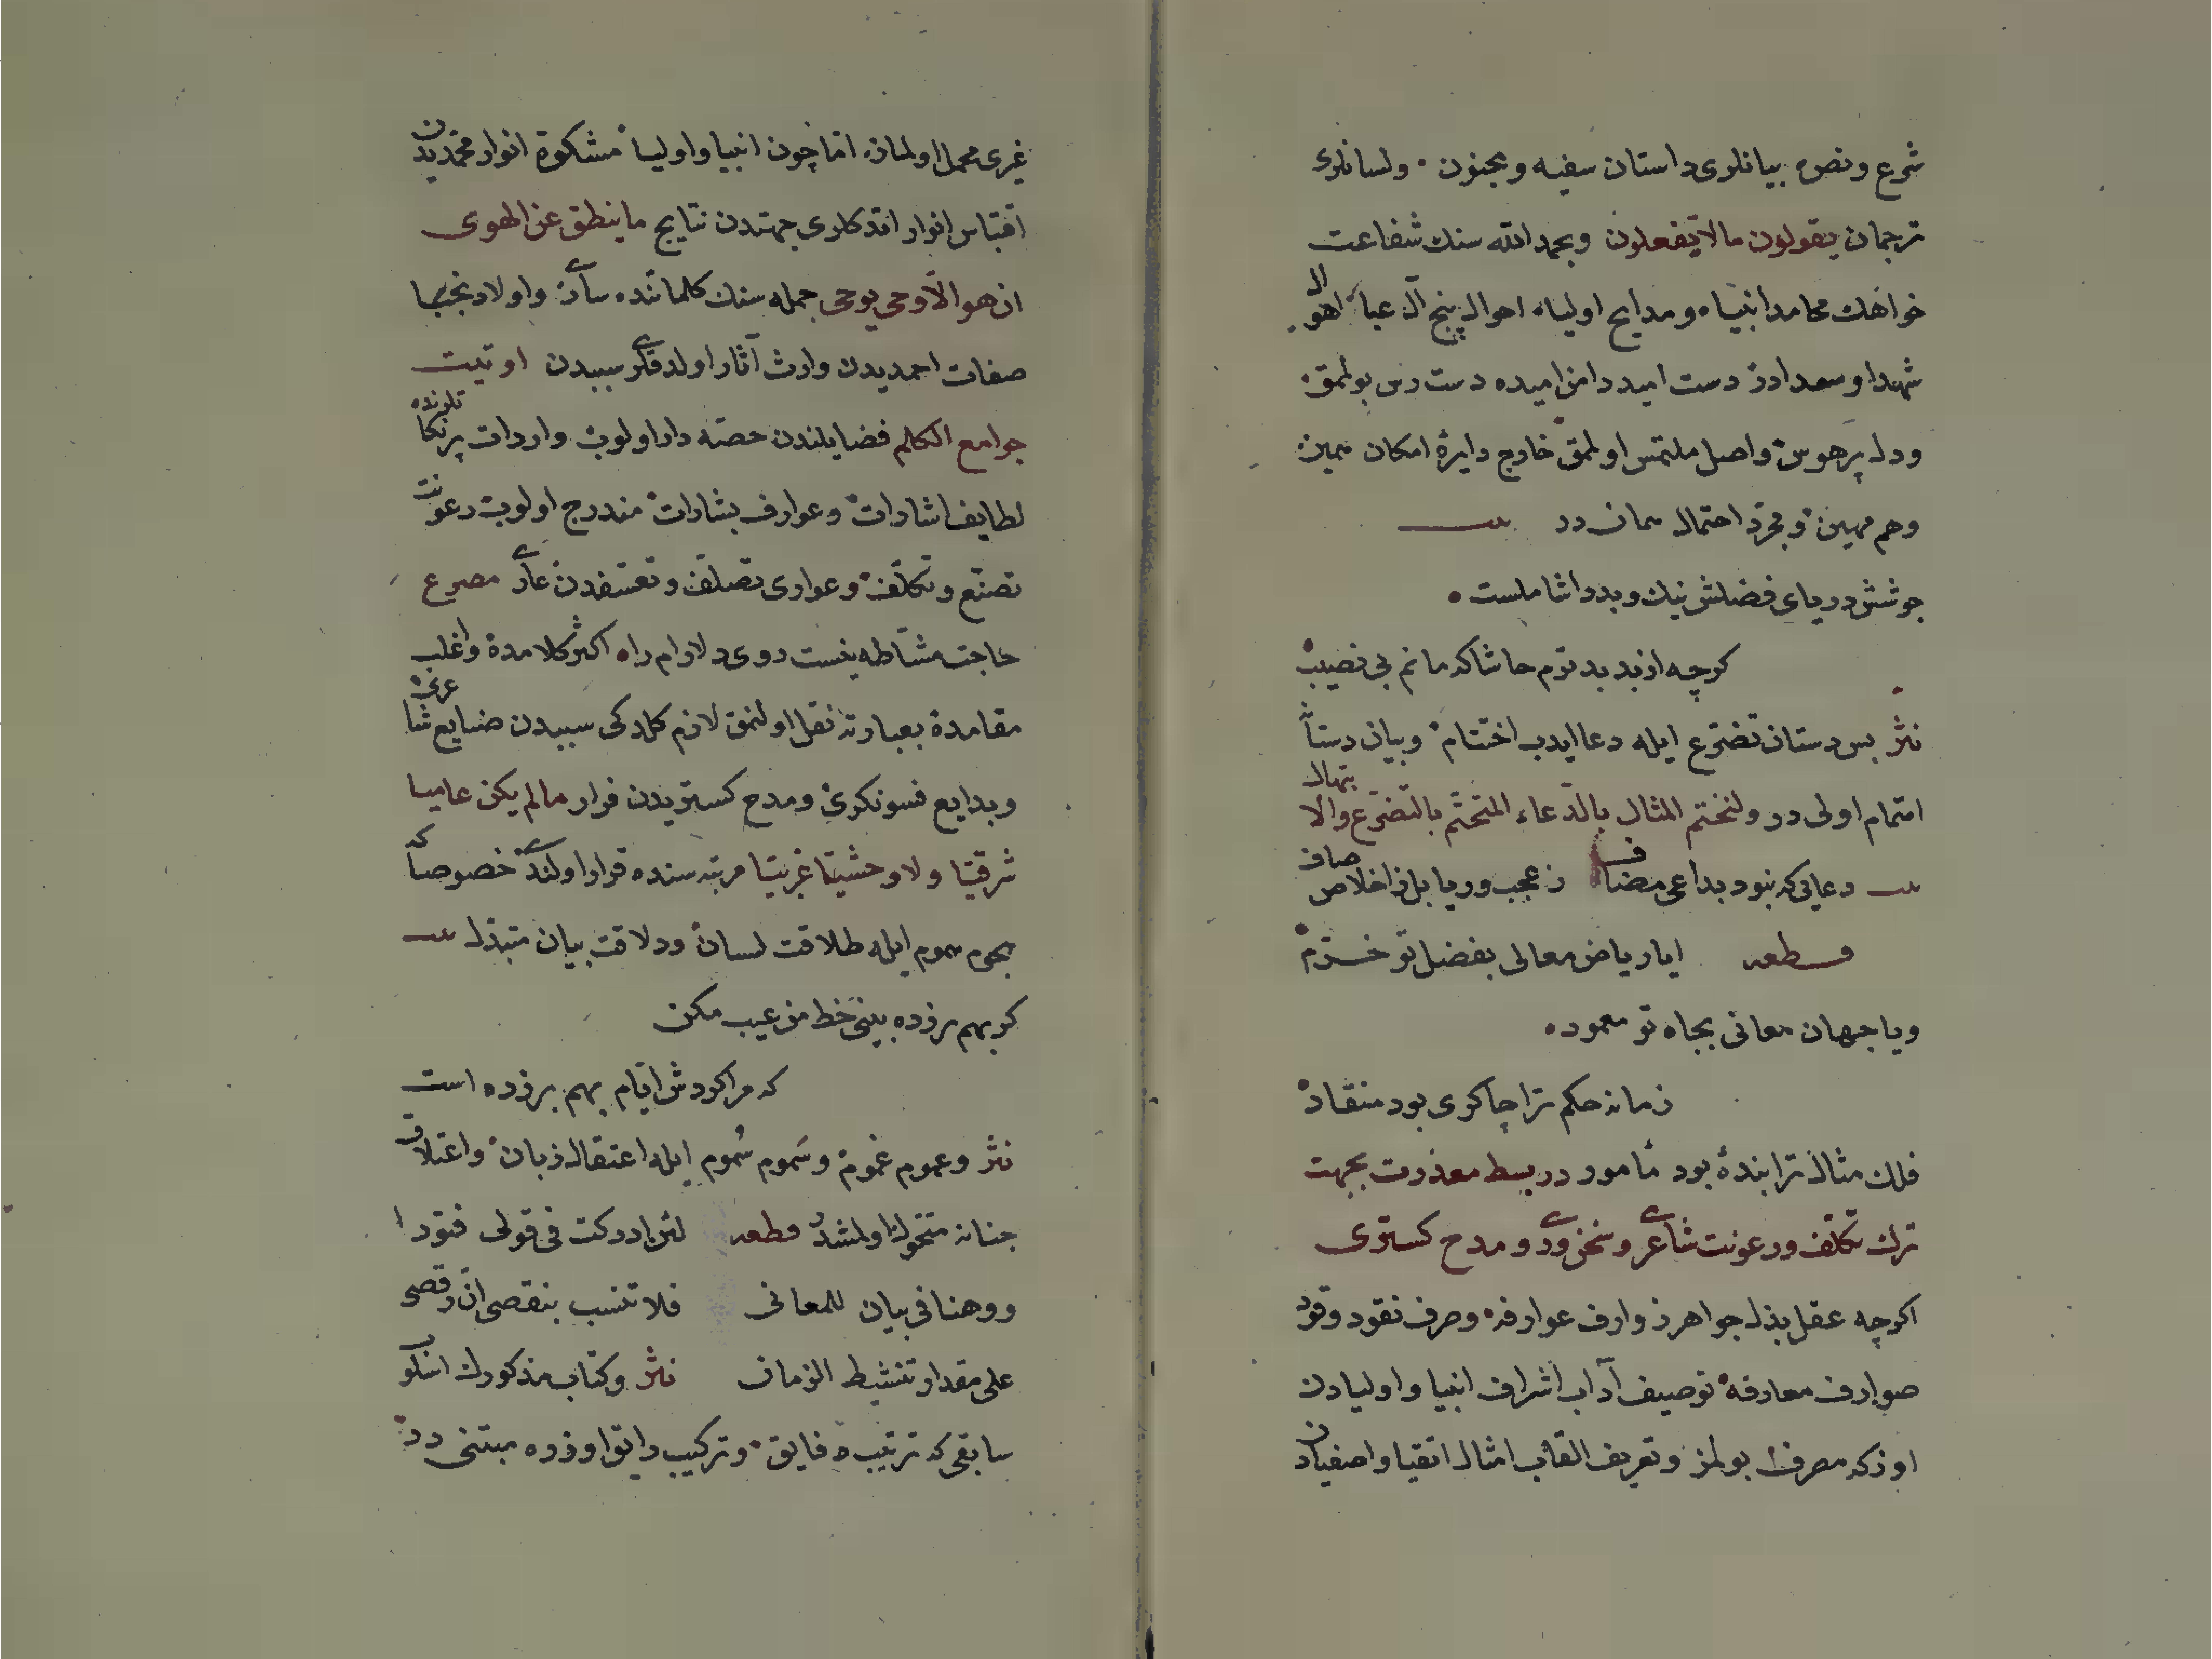 شرع ونصه بیانلری داستان سفیه ومجنون ولسانلری
ترجمان یقولون مالا یفعلون وبحمد الله سنك شفاعت
خواهك محامد انبیاء ومدایح اولیاء احوال پنج آل عبا اهوال
شهدا وسعدادر دست امید دامن امیده دست رس بولمق
ودل پرهوس واصل ملتمس اولمق خارج دایرۀ امکان همین
وهم مهین ومجرد احتمال همان در
جوشش دریای فضلش نیك وبدرا شاملست
کرچه از بد بدترم حاشا که مانم بی نصیب
نثر بس دستان تضرع ایله دعا ایدب اختتام وبیان دستان
اتمام اولی در ولنختم المثال بالدعاء المتحتم بالتضرع والابتهال
دعایی که نبود بداعی مضاف ز عجب وریا بل ز اخلاص صاف
قطعه ایا ریاض معالی بفضل تو خرم
ویا جهان معانی بجاه تو معمور
زمانه حکم ترا چاکری بود منقاد
فلك مثال ترا بندۀ بود مأمور در بسط معذرت بجهت
ترك تکلف ورعونت شاعری وسخنوری ومدح کستری
اکرچه عقل بذل جواهر زوارف عوارفه وصرف نقود وقود
صوارف معارفه توصیف آداب اشراف انبیا واولیادن
اوزکه مصرف بولمز وتعریف القاب امثال اتقیا واصفیادن
غیری محمل اولماز اما چون انبیا واولیا مشکوة انوار محمدیدن
اقتباس انوار اتدکلری جهتدن نتایج ما ینطق عن الهوی
ان هو الا وحی یوحی جمله سنك کلماتنده ساری واولاد نجبا
صفات احمدیدن وارث آثار اولدقلری سببدن اوتیت
جوامع الکلم فضایلندن حصه دار اولوب واردات پرنکاتلرنده
لطایف اشارات وعوارف بشارات مندرج اولوب رعونت
تصنع وتکلف وعواری تصلف وتعسفدن عاری مصرع
حاجت مشاطه نیست روی دلارام را اکثر کلامده واغلب
مقامده بعبارته نقل اولنمق لازم کلدکی سببدن صنایع شاعری
وبدایع فسونکری ومدح کستریدن فرار مالم یکن عامیا
شرقیا ولا وحشیا غربیا مرتبه سنده قرار اولندی خصوصا که
هجوم هموم ایله طلاقت لسان ودلاقت بیان متبذل
کر بهم برزده بینی خط من عیب مکن
که مرا کردش ایام بهم برزده است
نثر وعموم غموم وسموم سموم ایله اعتقال زبان واعتلاق
جنانه متحول اولمشدر قطعه لئن ادرکت فی قولی فتورا
ووهنا فی بیان للمعانی فلا تنسب بنقصی ان رقصی
علی مقدار تنشیط الزمان نثر وکتاب مذکورك اسلوب
سابقی که ترتیب فایق وترکیب رایق اوزره مبتنی در